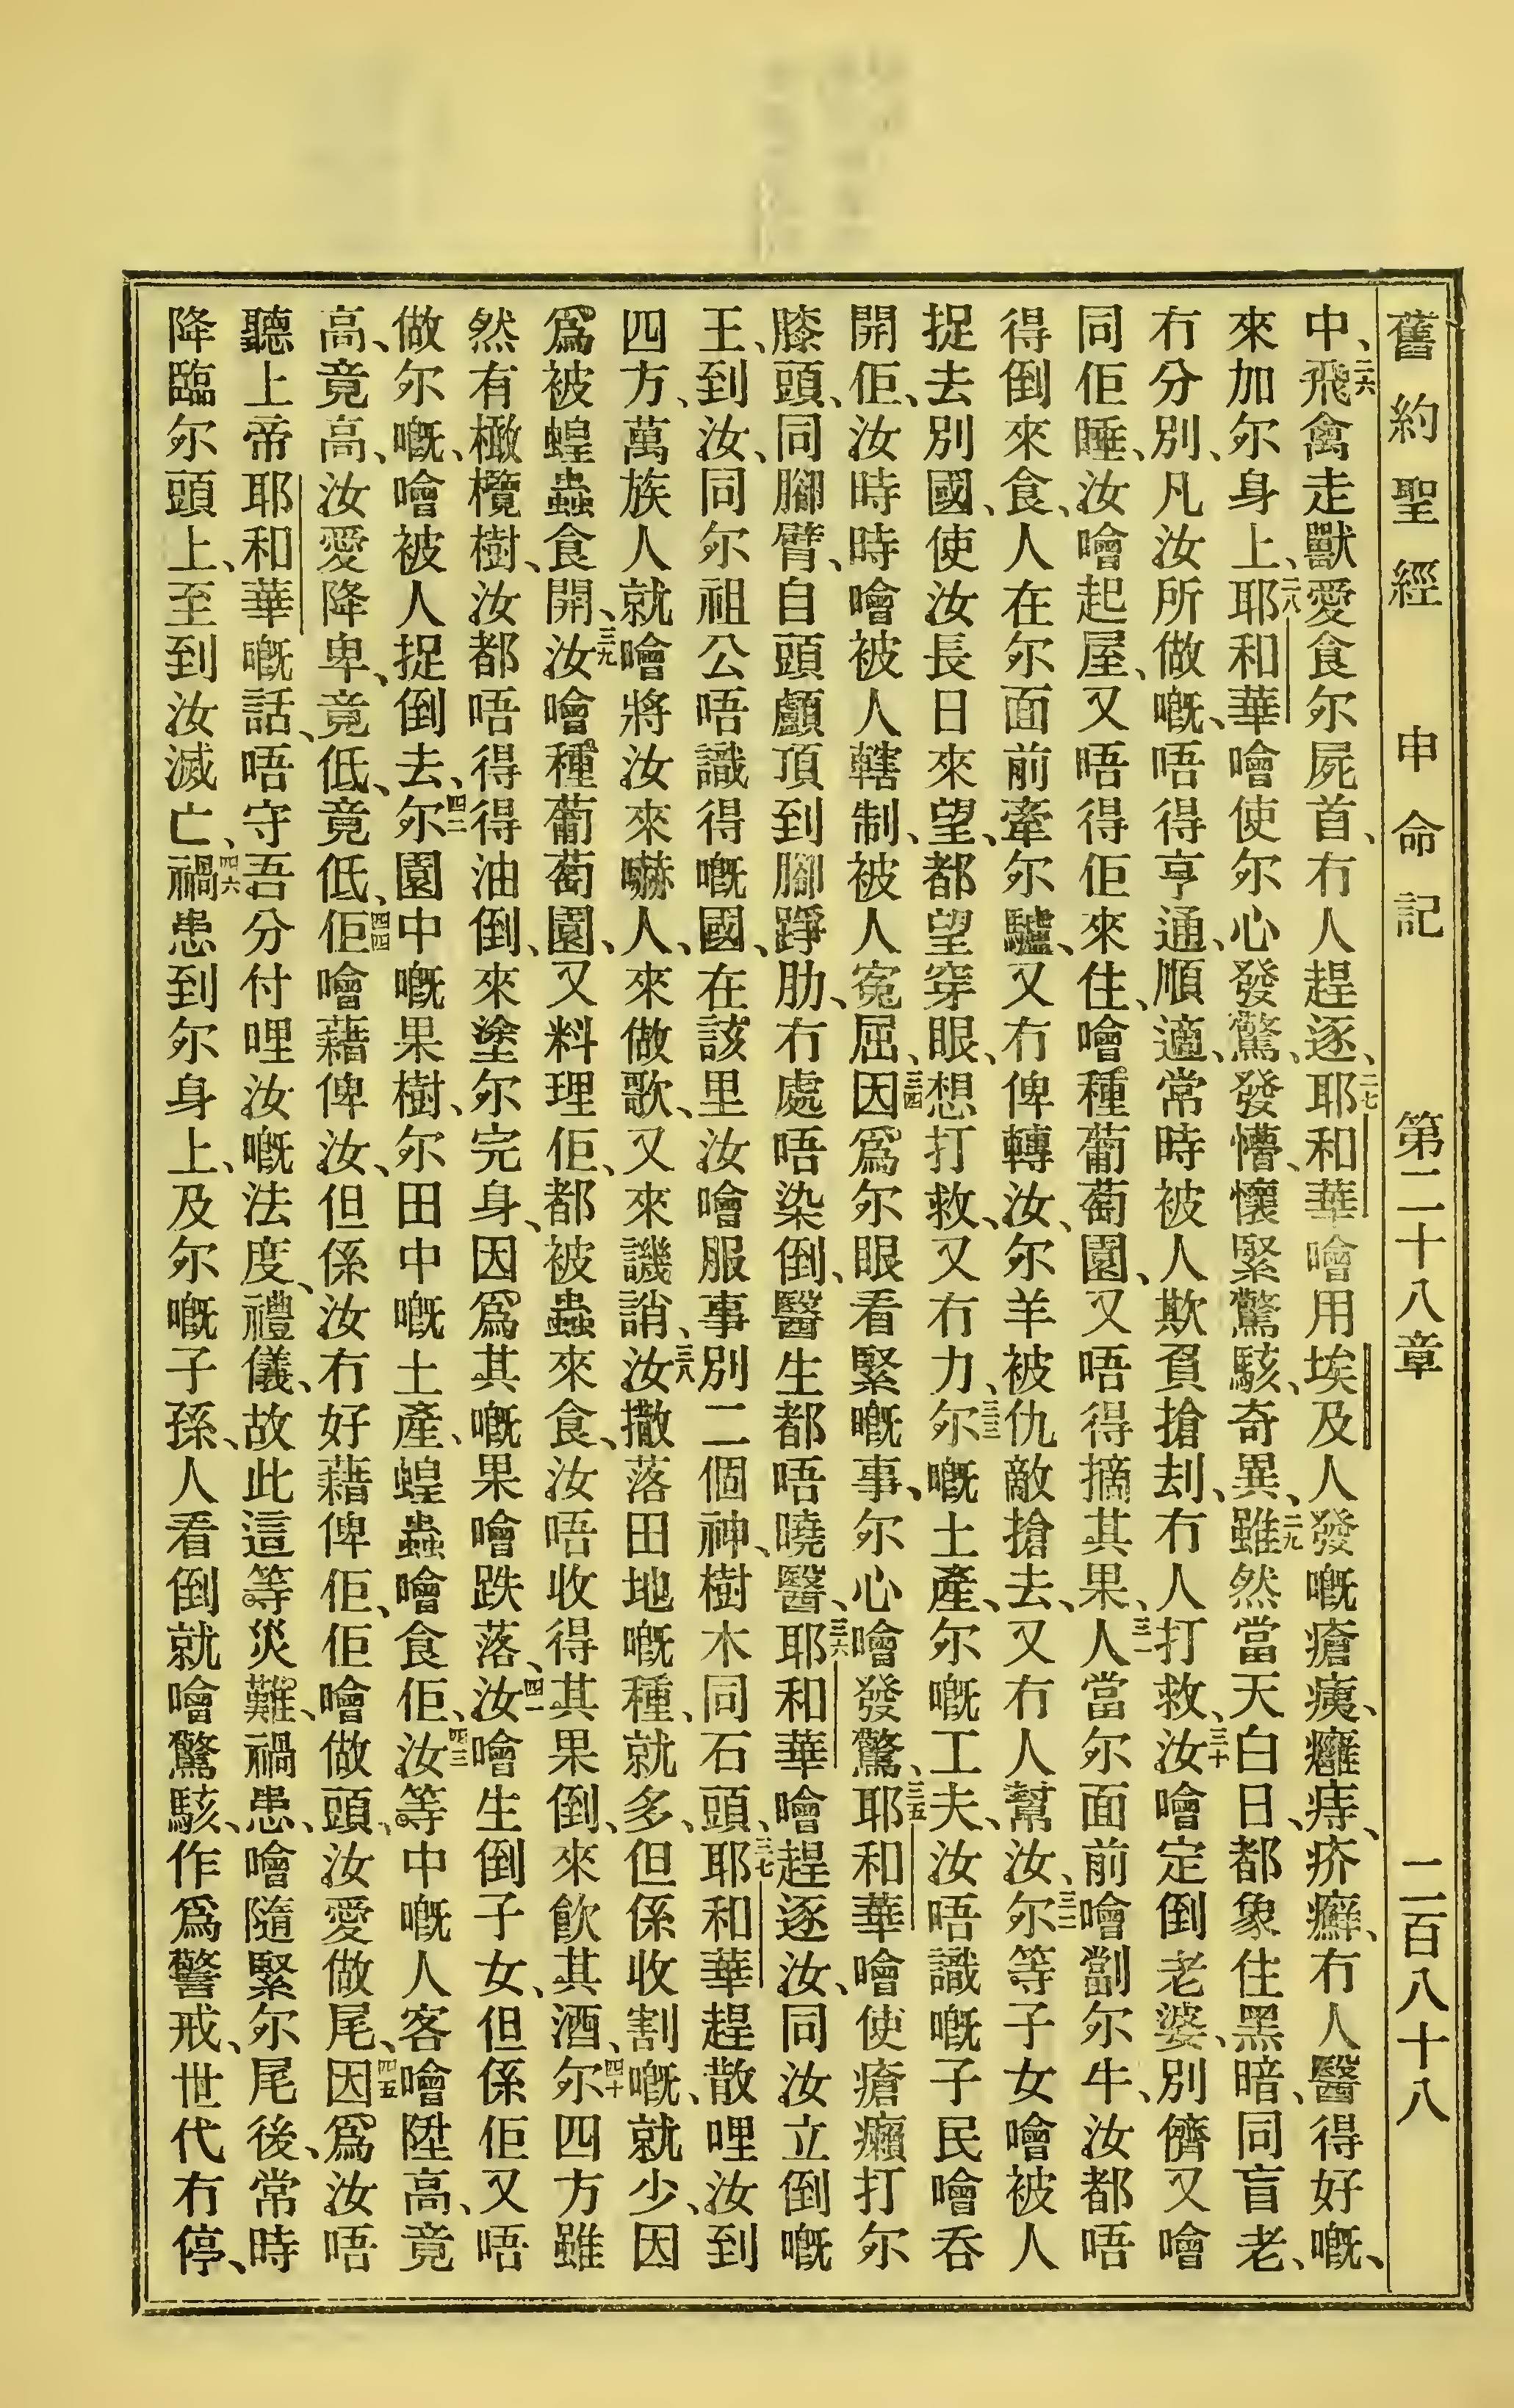 舊約聖經 申命記 第二十八章 二百八十八
中、二六飛禽走獸愛食尔屍首、冇人趕逐、二七耶和華噲用埃及人發嘅瘡痍、癰痔、疥癬、冇人醫得好嘅、
來加尔身上、二八耶和華噲使尔心發驚、發懵、懷緊驚駭、奇異、二九雖然當天白日、都象住黑暗、同盲老、
冇分別、凡汝所做嘅、唔得亨通、順適、常時被人欺負搶刦、冇人打救、三十汝噲定倒老婆、別儕又噲
同佢睡、汝噲起屋、又唔得佢來住、噲種葡萄園、又唔得摘其果、三一人當尔面前噲劏尔牛、汝都唔
得倒來食、人在尔面前牽尔驢、又冇俾轉汝、尔羊被仇敵搶去、又冇人幫汝、三二尔等子女噲被人
捉去別國、使汝長日來望、都望穿眼、想打救、又冇力、三三尔嘅土產、尔嘅工夫、汝唔識嘅子民噲吞
開佢、汝時時噲被人轄制、被人寃屈、三四因爲尔眼看緊嘅事、尔心噲發驚、三五耶和華噲使瘡癩打尔
膝頭、同腳臂、自頭顱頂到腳踭肋、冇處唔染倒、醫生都唔曉醫、三六耶和華噲趕逐汝、同汝立倒嘅
王、到汝、同尔祖公唔識得嘅國、在該里汝噲服事別二個神、樹木同石頭、三七耶和華趕散哩汝到
四方、萬族人就噲將汝來嚇人、來做歌、又來譏誚、三八汝撒落田地嘅種、就多、但係收割嘅、就少、因
爲被蝗蟲食開、三九汝噲種葡萄園、又料理佢、都被蟲來食、汝唔收得其果倒、來飮其酒、四十尔四方雖
然有橄欖樹、汝都唔得得油倒、來塗尔完身、因爲其嘅果噲跌落、四一汝噲生倒子女、但係佢又唔
做尔嘅、噲被人捉倒去、四二尔園中嘅果樹、尔田中嘅土產、蝗蟲噲食佢、四三汝等中嘅人客噲陞高、竟
高、竟高、汝愛降卑、竟低、竟低、四四佢噲藉俾汝、但係汝冇好藉俾佢、佢噲做頭、汝愛做尾、四五因爲汝唔
聽上帝耶和華嘅話、唔守吾分付哩汝嘅法度、禮儀、故此這等災難、禍患、噲隨緊尔尾後、常時
降臨尔頭上、至到汝滅亡、四六禍患到尔身上、及尔嘅子孫、人看倒就噲驚駭、作爲警戒、世代冇停、